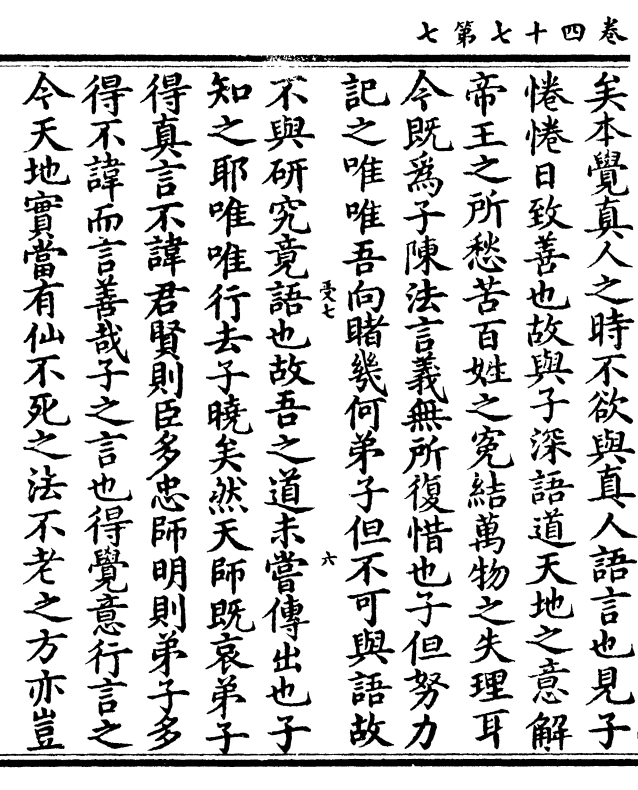 卷四十七第七
矣本覺真人之時不欲與真人語言也見子
惓惓日致善也故與子深語道天地之意解
帝王之所愁苦百姓之寃結萬物之失理耳
今既爲子陳法言義無所復惜也子但努力
記之唯唯吾向睹幾何弟子但不可與語故
受七 六
不與研究竟語也故吾之道未嘗傳出也子
知之耶唯唯行去子曉矣然天師既哀弟子
得真言不諱君賢則臣多忠師明則弟子多
得不諱而言善哉子之言也得覺意行言之
今天地實當有仙不死之法不老之方亦豈